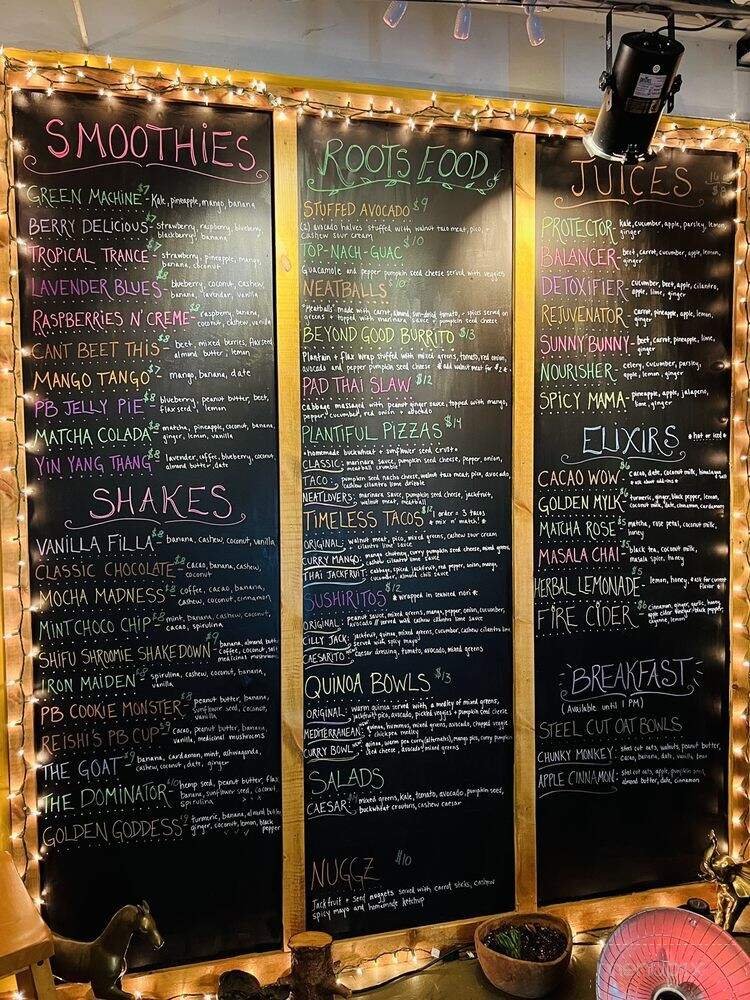 SMOOTHIES
GREEN MACHINE $7 - Kale, pineapple, mango, banana
BERRY DELICIOUS $7 - strawberry, raspberry, blueberry,
blackberry, banana
TROPICAL TRANCE $7 - strawberry, pineapple, mango,
banana, coconut
LAVENDER BLUES $8 - blueberry, coconut, cashew,
banana, lavender, vanilla
RASPBERRIES N' CREME $8 - raspberry, banana,
coconut, cashew, vanilla
CANT BEET THIS $8 - beet, mixed berries, flaxseed,
almond butter, lemon
MANGO TANGO $7 - mango, banana, date
PB JELLY PIE $8 - blueberry, peanut butter, beet,
flax seed, lemon
MATCHA COLADA $8 - matcha, pineapple, coconut, banana,
ginger, lemon, vanilla
YIN YANG THANG $8 - lavender, coffee, blueberry, coconut,
almond butter, date
SHAKES
VANILLA FILLA $8 - banana, cashew, coconut, vanilla
CLASSIC CHOCOLATE $8 - cacao, banana, cashew,
coconut
MOCHA MADNESS $8 - coffee, cacao, banana,
cashew, coconut, cinnamon
MINT CHOCO CHIP $8 - mint, banana, cashew, coconut,
cacao, spirulina
SHIFU SHROOMIE SHAKEDOWN $9 - banana, almond butter,
coffee, coconut,
medicinal mushrooms
IRON MAIDEN $8 - spirulina, cashew, coconut, banana,
vanilla
PB COOKIE MONSTER $8 - peanut butter, banana,
sunflower seed, coconut,
vanilla
REISHI'S PB CUP $9 - cacao, peanut butter, banana,
vanilla, medicinal mushrooms
THE GOAT $9 - banana, cardamon, mint, ashwaganda,
cashew, coconut, date, ginger
THE DOMINATOR $10 - hemp seed, peanut butter, flax
banana, sunflower seed, coconut,
spirulina
GOLDEN GODDESS $9 - turmeric, banana, almond butter
ginger, coconut, lemon, black
pepper
ROOTS FOOD
STUFFED AVOCADO $9
(2) avocado halves stuffed with walnut taco meat, pico,
cashew sour cream
TOP-NACH-GUAC $10
Guacamole and pepper pumpkin seed cheese served with veggies
NEATBALLS $10
"Meatballs" made with carrot, almond, sun-dried tomato, + spices served on
greens + topped with marinara sauce + pumpkin seed cheese
BEYOND GOOD BURRITO $13
Plantain + Flax wrap stuffed with mixed greens, tomato, red onion,
avocado and pepper pumpkin seed cheese * add walnut meat for $2 *
PAD THAI SLAW $12
cabbage massaged with peanut ginger sauce, topped with mango,
pepper, cucumber, red onion + avocado
PLANTIFUL PIZZAS $14
*homemade buckwheat + sunflower seed crust*
CLASSIC: marinara sauce, pumpkin seed cheese, pepper, onion,
meatball crumble
TACO: pumpkin seed nacho cheese, walnut taco meat, pico, avocado,
cashew cilantro lime drizzle
NEATLOVERS: marinara sauce, pumpkin seed cheese, jackfruit,
walnut meat, meatball
TIMELESS TACOS $12 1 order = 3 tacos
* mix n' match! *
ORIGINAL: walnut meat, pico, mixed greens, cashew sour cream
+ cilantro lime sauce
CURRY MANGO: mango chutney, curry pumpkin seed cheese, mixed greens,
cashew cilantro lime sauce
THAI JACKFRUIT: cabbage, spiced jackfruit, red pepper, onion, mango,
cucumber, almond chili sauce
SUSHIRITOS $12 * wrapped in seaweed nori *
ORIGINAL: peanut sauce, mixed greens, mango, pepper, onion, cucumber,
avocado served with cashew cilantro lime sauce
CILLY JACK: jackfruit, quinoa, mixed greens, cucumber, cashew cilantro lime
served with spicy mayo
CAESARITO: caesar dressing, tomato, avocado, mixed greens
QUINOA BOWLS $13
ORIGINAL: warm quinoa served with a medley of mixed greens,
jackfruit, pico, avocado, picked veggies + pumpkin seed cheese
MEDITERRANEAN: quinoa, hummus, mixed greens, avocado, chopped veggie
+ chickpea medley
CURRY BOWL: quinoa, warm pea curry (alternate), mango pico, curry pumpkin
seed cheese, avocado + mixed greens
SALADS
CAESAR: mixed greens, kale, tomato, avocado, pumpkin seed,
buckwheat croutons, cashew caesar
NUGGZ $10
Jackfruit + seed nuggets served with carrot sticks, cashew
spicy mayo and homemade ketchup
JUICES
PROTECTOR - kale, cucumber, apple, parsley, lemon,
ginger
BALANCER - beet, carrot, cucumber, apple, lemon,
ginger
DETOXIFIER - cucumber, beet, apple, cilantro,
apple, lime, ginger
REJUVENATOR - carrot, pineapple, apple, lemon,
ginger
SUNNY BUNNY - beet, carrot, pineapple, lime,
ginger
NOURISHER - celery, cucumber, parsley,
apple, lemon, ginger
SPICY MAMA - pineapple, apple, jalapeno,
lime, ginger
ELIXIRS * hot or iced *
CACAO WOW $6 - cacao, date, coconut milk, himalayan salt
* ask about add-ins *
GOLDEN MYLK $6 - turmeric, ginger, black pepper, lemon,
coconut milk, date, cinnamon, cardamon
MATCHA ROSE $5 - matcha, rose petal, coconut milk,
honey
MASALA CHAI $5 - black tea, coconut milk,
masala spice, honey
HERBAL LEMONADE $5 - lemon, honey, * ask for current
flavor *
FIRE CIDER $6 - cinnamon, ginger, garlic, honey
apple cider vinegar, black pepper,
cayenne, lemon
BREAKFAST
(Available until 1 PM)
STEEL CUT OAT BOWLS
CHUNKY MONKEY: steel cut oats, walnuts, peanut butter,
cacao, banana, date, vanilla bean
APPLE CINNAMON: steel cut oats, apple, pumpkin seed,
almond butter, date, cinnamon